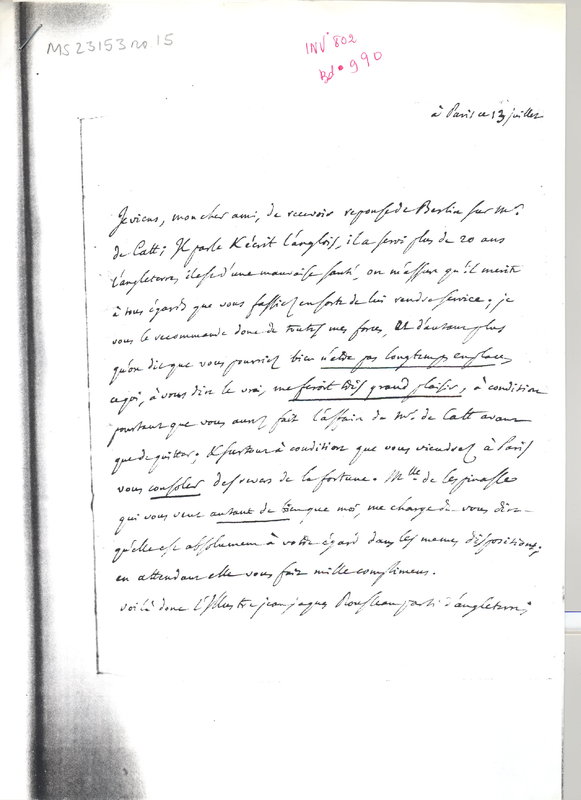 MS 23153 no 15
INV° 802
Bd. 990
à Paris ce 13 juillet
Je viens, mon cher ami, de recevoir reponse de Berlin sur Mr.
de Catt; Il parle & écrit l'anglois, il a servi plus de 20 ans
l'angleterre, il est d'une mauvaise santé, on m'assure qu'il merite
à tous égards que vous fassiez en sorte de lui rendre service; je
vous le recommande donc de toutes mes forces, et d'autant plus
qu'on dit que vous pourriez bien n'etre pas longtemps en place,
ce qui, à vous dire le vrai, me feroit très grand plaisir, à condition
pourtant que vous aurez fait l'affaire de Mr. de Catt avant
que de quitter, & surtout à condition que vous viendrez à Paris
vous consoler des revers de la fortune. Mlle de Lespinasse
qui vous veut autant de bien que moi, me charge de vous dire
qu'elle est absolument à votre égard dans les memes dispositions;
en attendant elle vous fait mille complimens.
voilà donc l'Illustre jean jaques Rousseau parti d'angleterre;